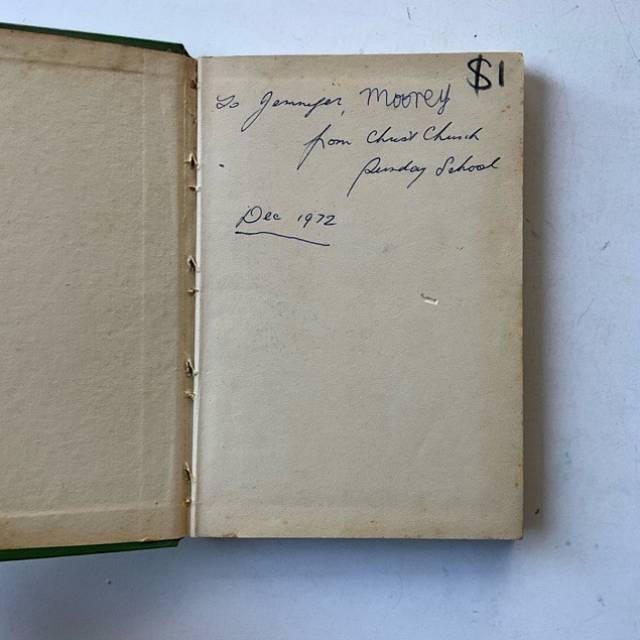 To Jennifer, Moorey $1
from Christ Church
Sunday School
Dec 1972